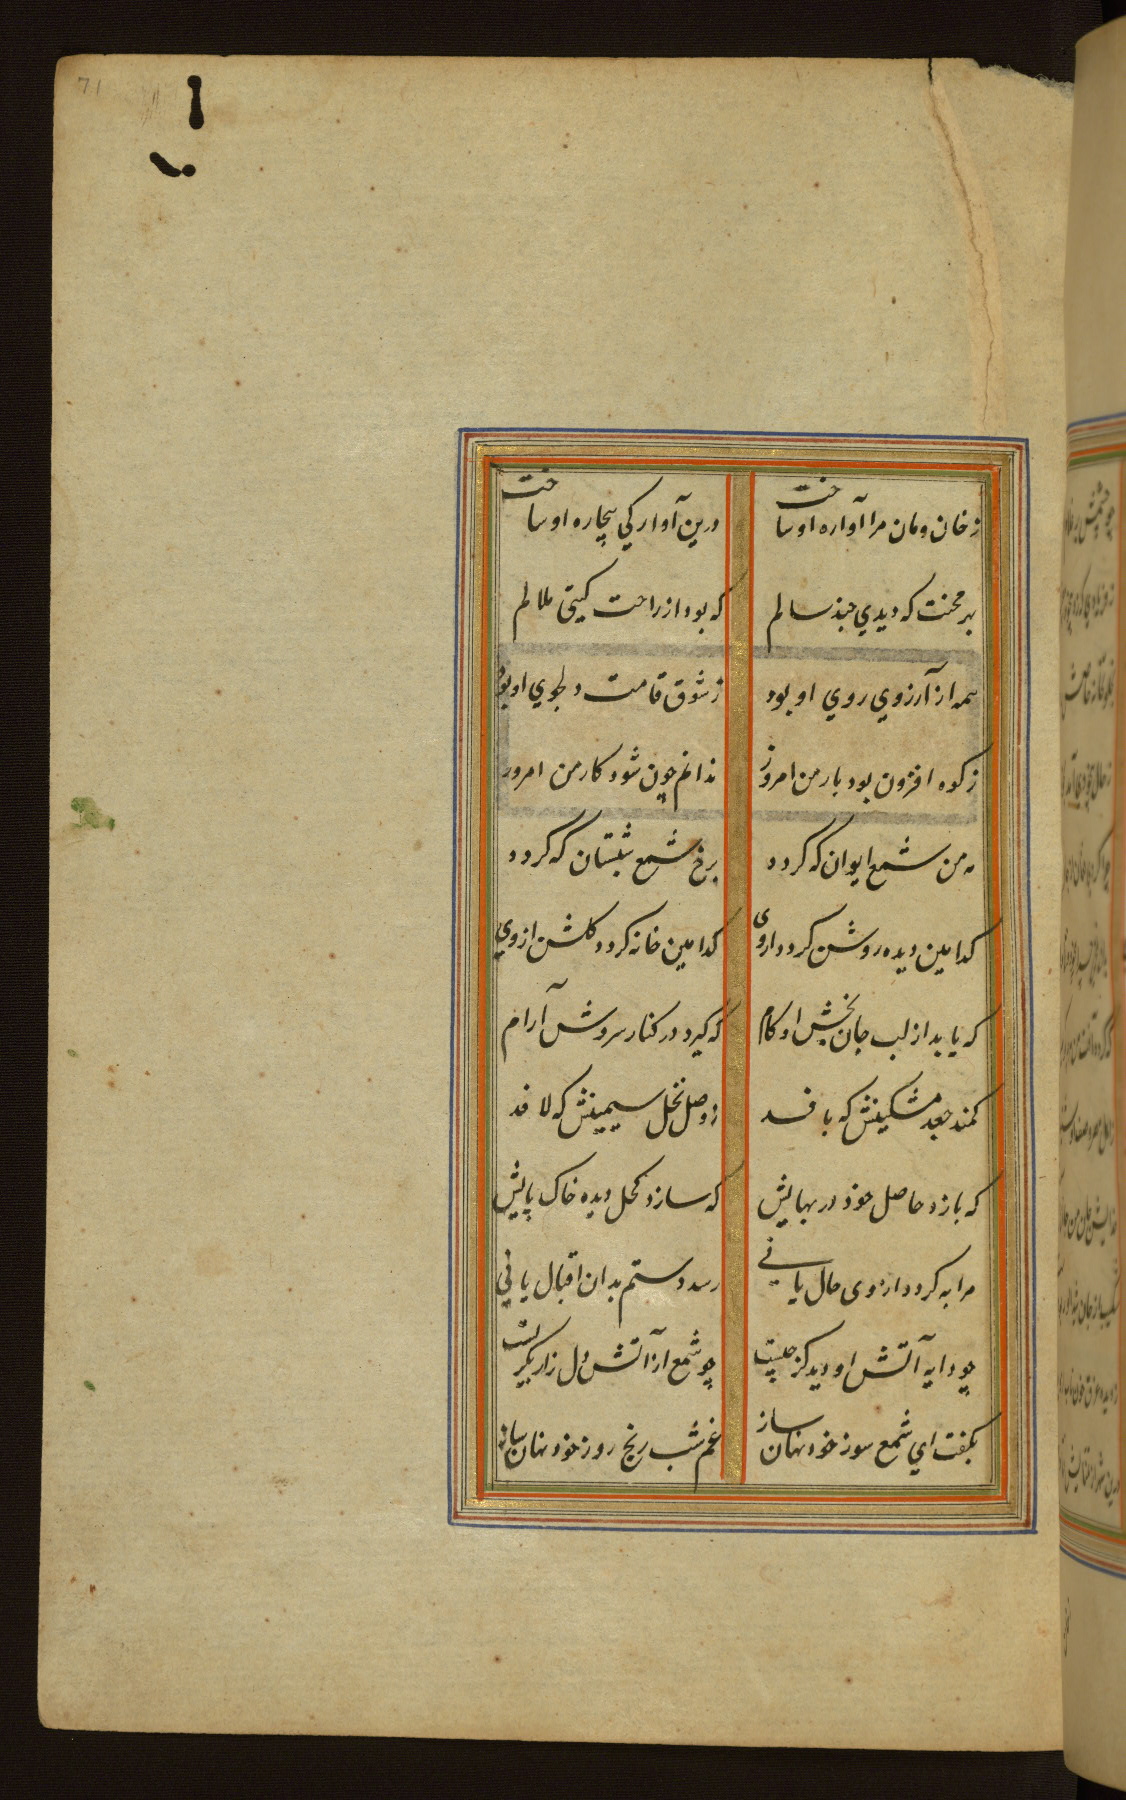 71
ز خان و مان مرا آواره او ساخت
درین آوارکي بیچاره او ساخت
بهر محنت که دیدي چند سالم
که بود از راحت کیتی ملالم
همه از آرزوي روي او بود
ز شوق قامت دلجوي او بود
ز کوه افزون بود بار من امروز
ندانم چون شود کار من امروز
مه من شمع ایوان که کردد
برخ شمع شبستان که کردد
کدامین دیده روشن کردد از وی
کدامین خانه کردد کلشن از وي
که یابد از لب جان بخش او کام
که کیرد در کنار سروش آرام
کمند جعد مشکینش که بافد
ز وصل نخل سیمینش که لافد
که بازد حاصل خود در بهایش
که سازد کحل دیده خاک پایش
مرا به کردد از وی حال یا نی
رسد دستم بدان اقبال یا نی
چو دایه آتش او دید کز چیست
چو شمع از آتش دل زار بکریست
بکفت اي شمع سوز خود نهان ساز
غم شب رنج روز خود نهان ساز